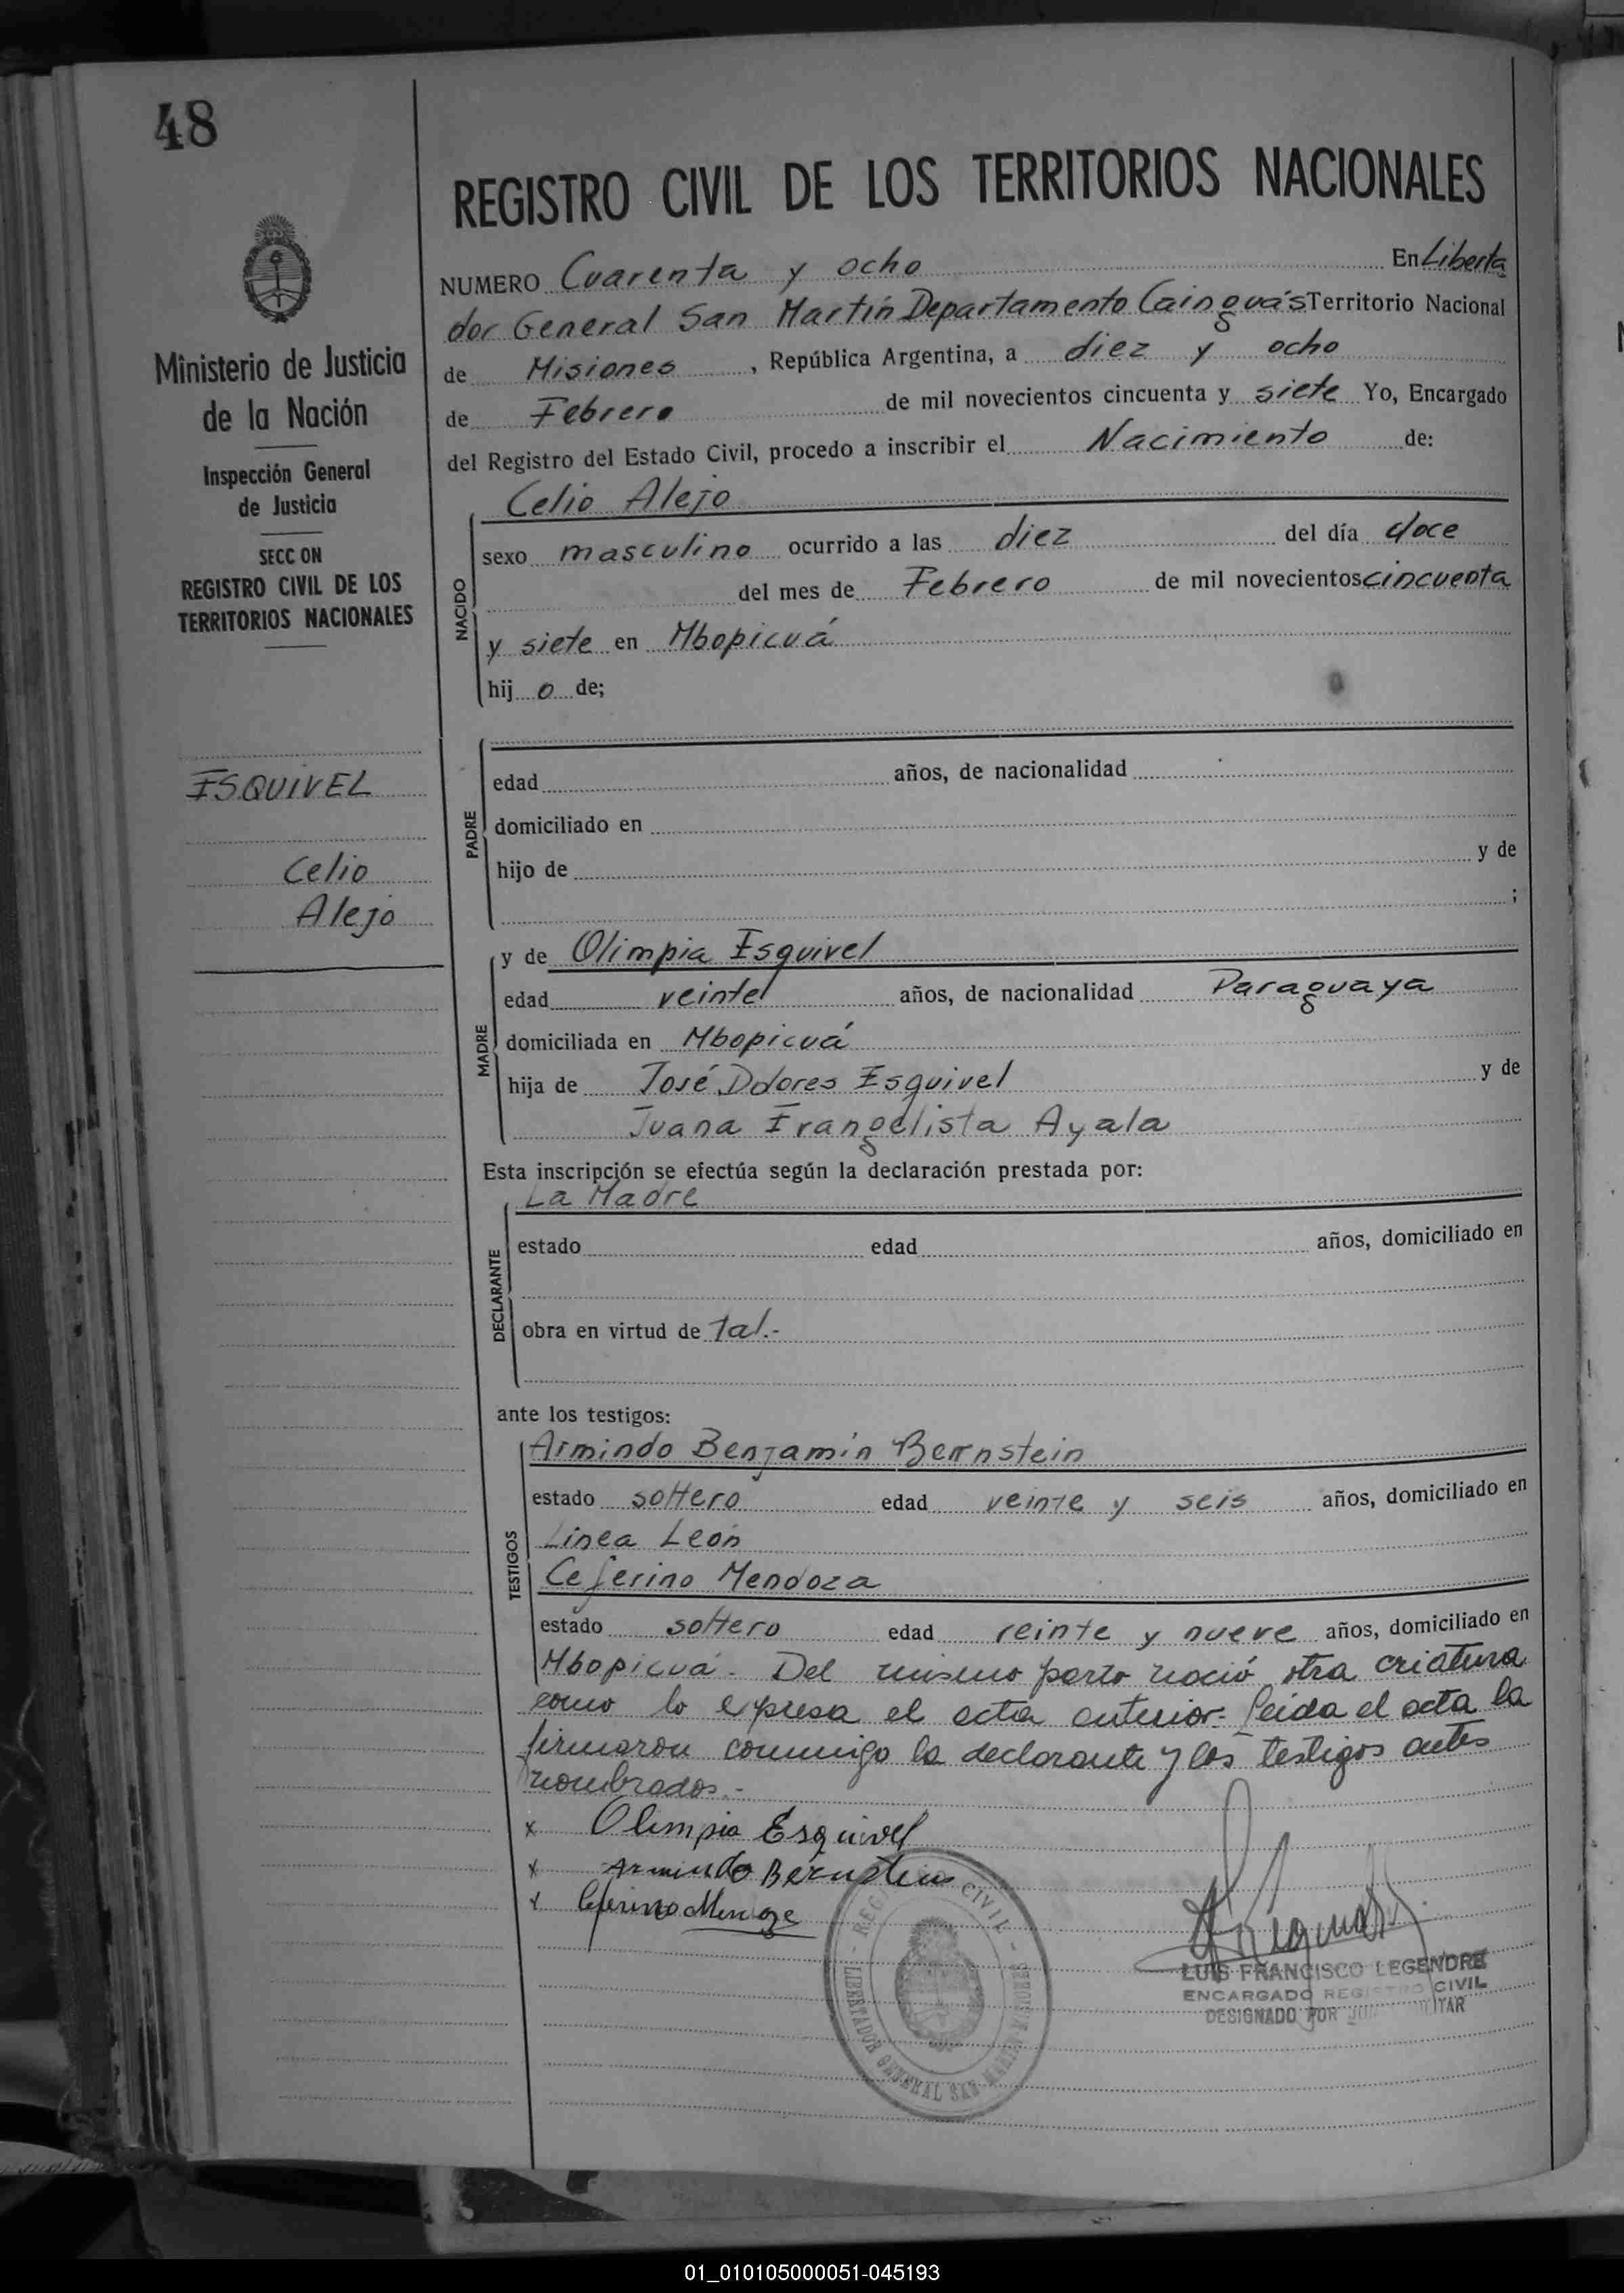 48
REGISTRO CIVIL DE LOS TERRITORIOS NACIONALES
Ministerio de Justicia
de la Nación
Inspección General
de Justicia
SECC ON
REGISTRO CIVIL DE LOS
TERRITORIOS NACIONALES
ESQUIVEL
Celio
Alejo
NUMERO Cuarenta y ocho En Liberta
dor General San Martín Departamento Cainguás Territorio Nacional
de Misiones, República Argentina, a diez y ocho
de Febrero de mil novecientos cincuenta y siete Yo, Encargado
del Registro del Estado Civil, procedo a inscribir el Nacimiento de:
Celio Alejo
NACIDO
sexo masculino ocurrido a las diez del día doce
del mes de Febrero de mil novecientos cincuenta
y siete en Mbopicuá
hij o de;
PADRE
edad años, de nacionalidad
domiciliado en
hijo de y de
;
MADRE
y de Olimpia Esquivel
edad veinte años, de nacionalidad Paraguaya
domiciliada en Mbopicuá
hija de José Dolores Esquivel y de
Juana Evangelista Ayala
Esta inscripción se efectúa según la declaración prestada por:
La Madre
DECLARANTE
estado edad años, domiciliado en
obra en virtud de tal.-
ante los testigos:
TESTIGOS
Armindo Benjamín Bernstein
estado soltero edad veinte y seis años, domiciliado en
Línea León
Ceferino Mendoza
estado soltero edad veinte y nueve años, domiciliado en
Mbopicuá. Del mismo parto nació otra criatura
como lo expresa el acta anterior.- Leída el acta la
firmaron conmigo la declarante y los testigos antes
nombrados.-
x Olimpia Esquivel
x Armindo Bernstein
x Ceferino Mendoza
REGISTRO CIVIL - LIBERTADOR GENERAL SAN MARTIN
LUIS FRANCISCO LEGENDRE
ENCARGADO REGISTRO CIVIL
DESIGNADO POR
01_010105000051-045193